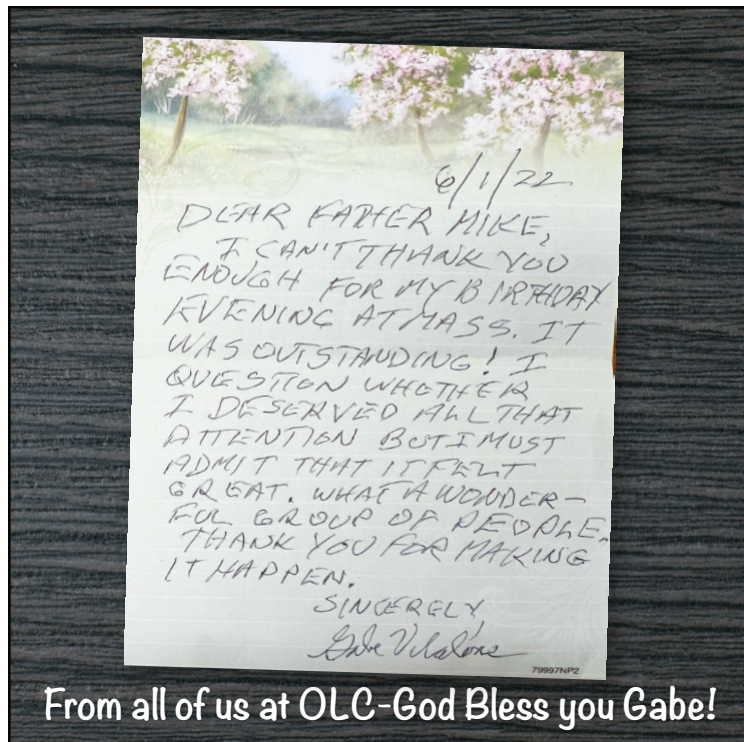 6/1/22
DEAR FATHER MIKE,
I CAN'T THANK YOU
ENOUGH FOR MY BIRTHDAY
EVENING AT MASS. IT
WAS OUTSTANDING! I
QUESTION WHETHER
I DESERVED ALL THAT
ATTENTION BUT I MUST
ADMIT THAT IT FELT
GREAT. WHAT A WONDER-
FUL GROUP OF PEOPLE.
THANK YOU FOR MAKING
IT HAPPEN.
SINCERELY,
Gabe
79997NP2
From all of us at OLC-God Bless you Gabe!